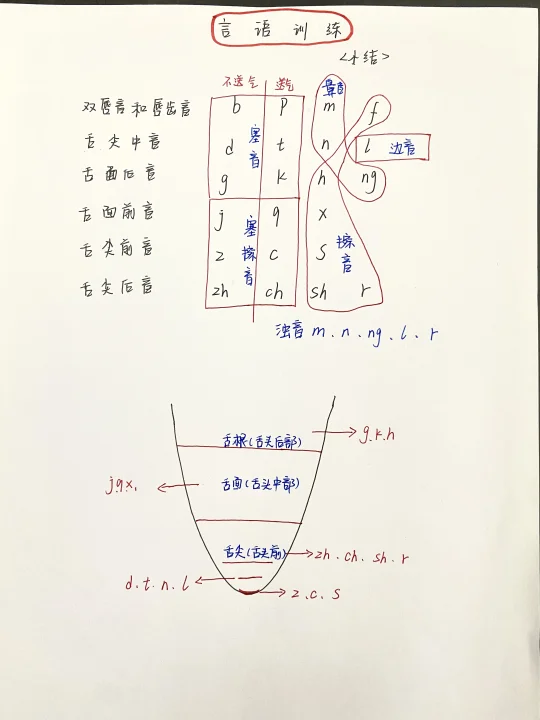 言语训练
<小结>
不送气 送气 鼻音
双唇音和唇齿音 b p m f
舌尖中音 d 塞音 t n l 边音
舌面后音 g k h ng
舌面前音 j 塞擦音 q x
舌尖前音 z c s 擦音
舌尖后音 zh ch sh r
浊音 m、n、ng、l、r
舌根(舌头后部) g.k.h
j.q.x. 舌面(舌头中部)
舌尖(舌头前) zh.ch.sh.r
d.t.n.l
z.c.s